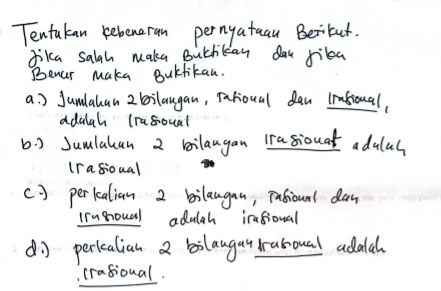 Tentukan kebenaran pernyataan Berikut.
Jika salah maka Buktikan dan jika
Benar maka Buktikan.
a.) Jumlahan 2 bilangan, rasional dan Irrasional,
adalah Irrasional
b.) Jumlahan 2 bilangan Irrasional adalah
Irasional
c.) perkalian 2 bilangan, rasional dan
Irrasional adalah irasional
d.) perkalian 2 bilangan Irrasional adalah
irrasional.